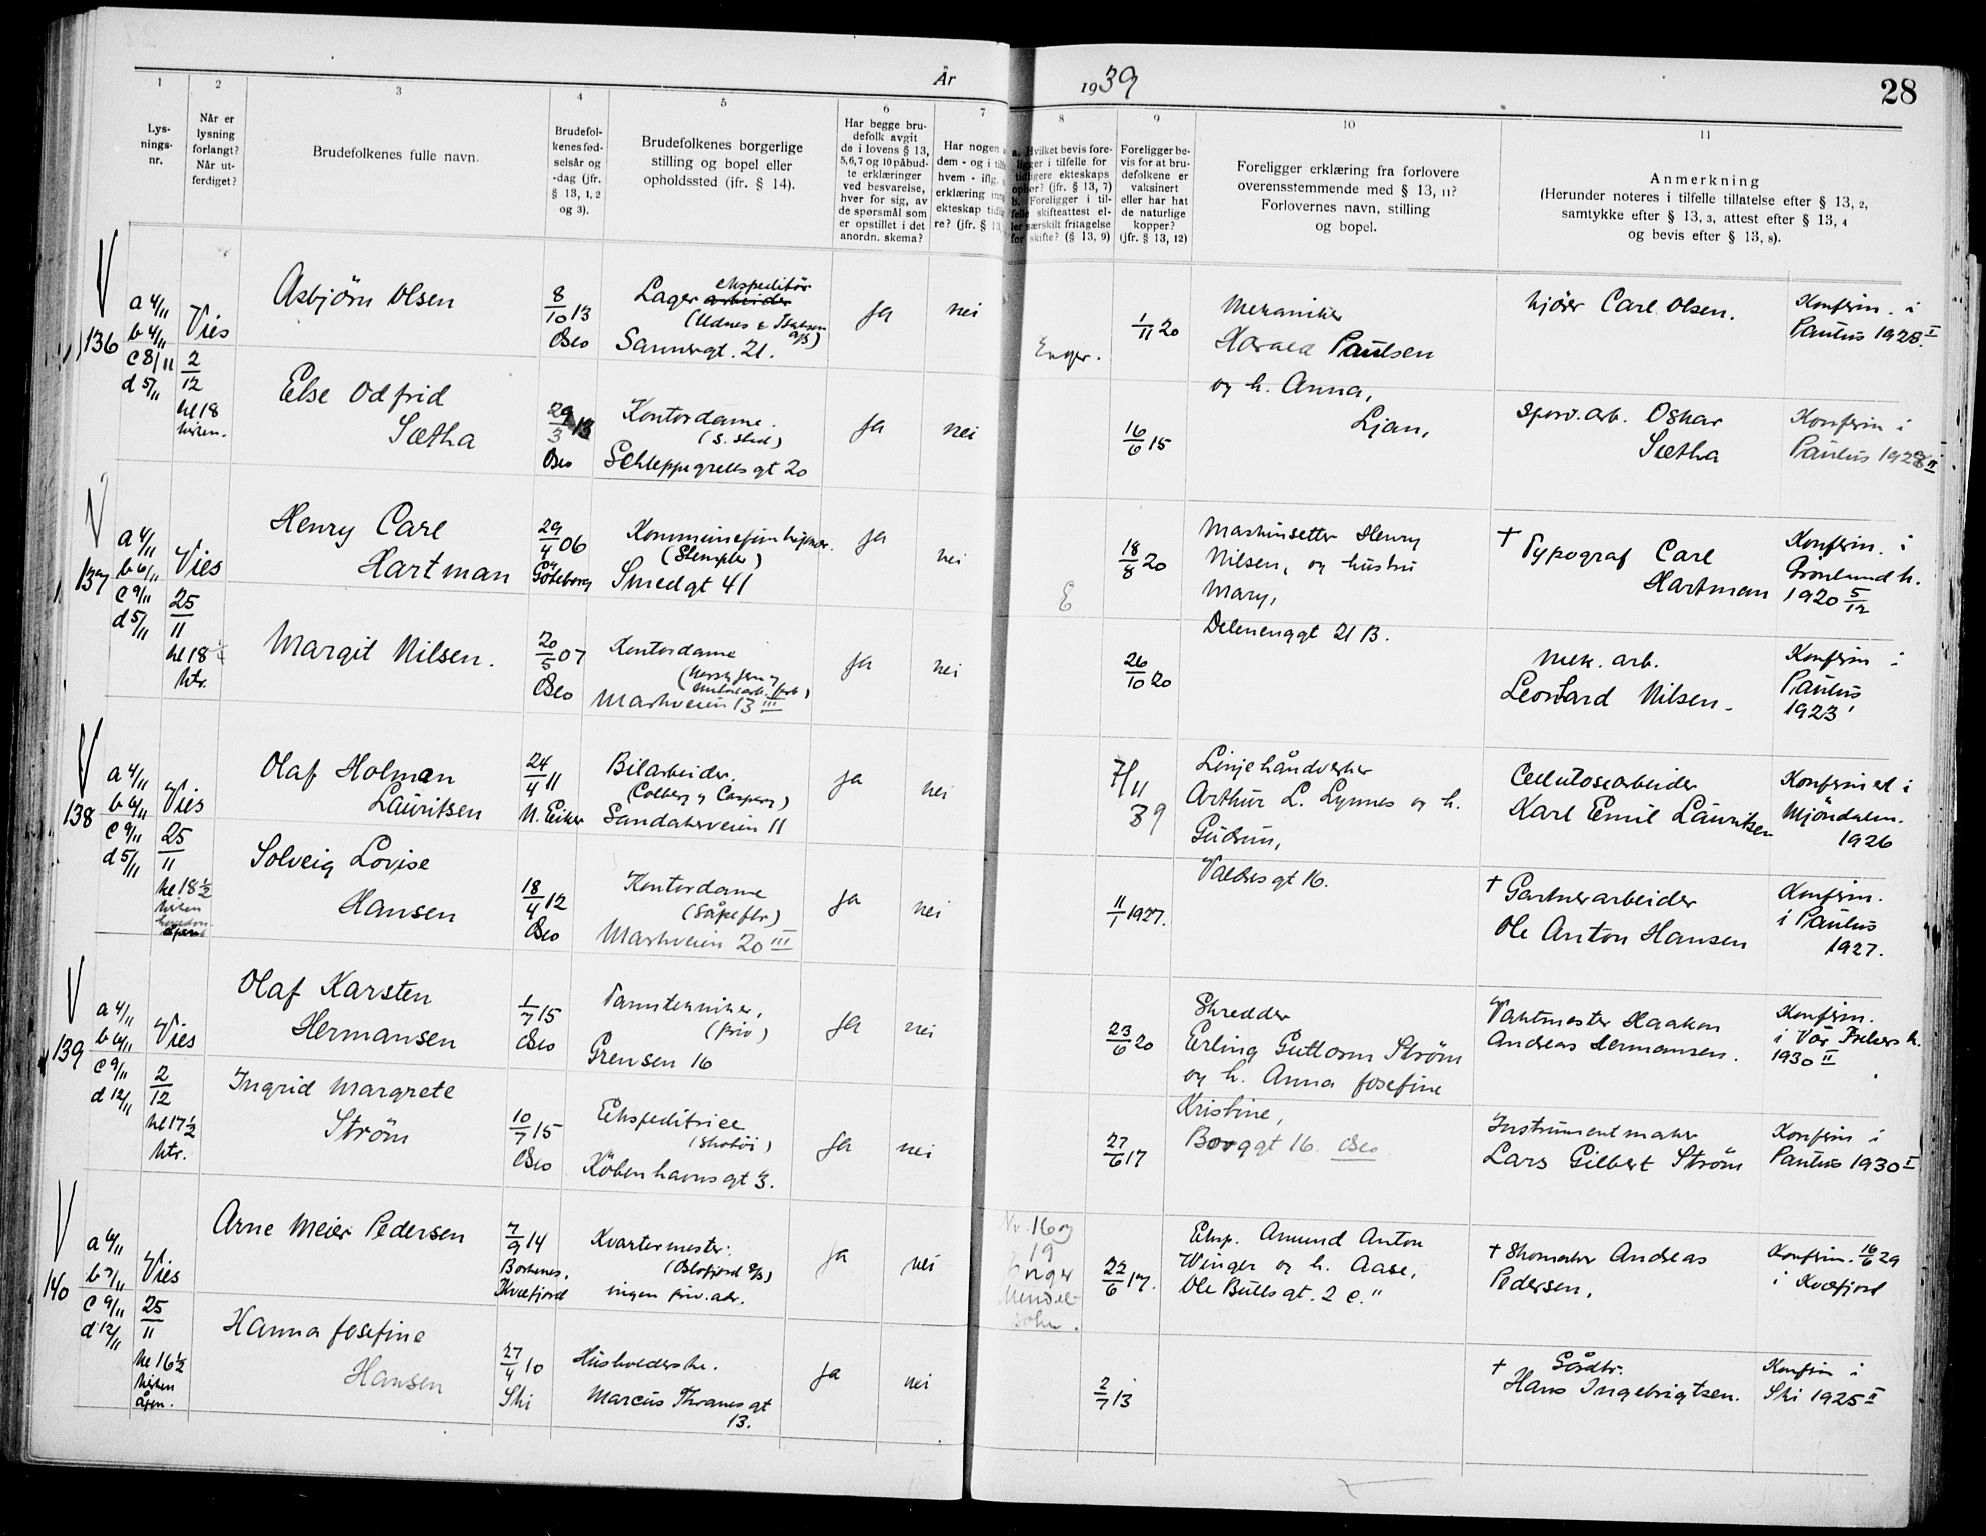 År 1939
28
1
2
3
4
5
6
7
8
9
10
11
Lys-
nings-
nr.
Når er
lysning
forlangt?
Når ut-
ferdiget?
Brudefolkenes fulle navn.
Brudefol-
kenes fød-
selsår og
-dag (jfr.
§ 13, 1, 2
og 3).
Brudefolkenes borgerlige
stilling og bopel eller
opholdssted (ifr. § 14).
Har begge bru-
defolk avgit
de i lovens § 13,
5,6,7 og 10 påbud-
te erklæringer
ved besvarelse,
hver for sig, av
de spørsmål som
er opstillet i det
anordn. skema?
Har nogen
dem - og i
hvem - iflg.
erklæring
ekteskap
re? (jfr. § 13
a. Hvilket bevis fore-
ligger i tilfelle for
tidligere ekteskaps
ophør? (jfr. § 13, 7)
b. Foreligger i til-
felle skifteattest el-
ler særskilt fritagelse
for skifte? (§ 13, 9)
Foreligger be-
vis for at bru-
defolkene er
vaksinert
eller har hat
de naturlige
kopper?
(jfr. § 13, 12)
Foreligger erklæring fra forlovere
overensstemmende med § 13, 11?
Forlovernes navn, stilling
og bopel.
Anmerkning
(Herunder noteres i tilfelle tillatelse efter § 13, 2,
samtykke efter § 13, 3, attest efter § 13, 4
og bevis efter § 13, 8).
136
a 4/11
b 4/11
c 8/11
d 5/11
Vies
2/12
kl 18
kirken.
Asbjørn Olsen
8/10 13
Oslo
Lager arbeider
ekspeditør
(Udnes & Isaksen
A/S)
Sannergt. 21.
Ja
nei
Enger.
1/11 20
Mekaniker
Harald Paulsen
og h. Anna,
Ljan,
kjører Carl Olsen.
Konfirm. i
Paulus 1928 I
Else Odfrid
Sætha
29/3 13
Oslo
Kontordame.
Schleppegrells gt 20
Ja
nei
16/6 15
Sporv. arb. Oskar
Sætha
Konfirm i
Paulus 1928 II
137
a 4/11
b 6/11
c 9/11
d 5/11
Vies
25/11
kl 18 1/4
ktr.
Henry Carl
Hartman
29/4 06
Göteborg
(Stempler)
Smedgt 41
Ja
nei
E
18/8 20
Maskinsetter Henry
Nilsen, og hustru
Mary,
Delenenggt 21 B.
† Typograf Carl
Hartman
Konfirm. i
Grønland k.
1920 5/12
Margit Nilsen.
20/5 07
Oslo
Kontordame
(Norsk Jern og
metalarb. forb)
Markveien 13 III
Ja
nei
26/10 20
Mek. arb.
Leonhard Nilsen.
Konfirm i
Paulus
1923
138
a 4/11
b 6/11
c 9/11
d 5/11
Vies
25/11
kl 18 1/2
kirken
Olaf Holman
Lauritsen
24/4 11
N. Eiker
Bilarbeider.
(Colberg & Caspary)
Sandakerveien 11
Ja
nei
7/11
39
Linjehåndverker
Arthur L. Lynnes og h.
Gudrun,
Valdresgt 16.
Cellulosearbeider
Karl Emil Lauritsen
Konfirmert i
Mjøndalen.
1926
Solveig Lovise
Hansen
18/4 12
Oslo
Kontordame
(Såpefbr)
Markveien 20 III
Ja
nei
11/1 1927.
† Gartnerarbeider
Ole Anton Hansen
Konfirm.
i Paulus
1927.
139
a 4/11
b 6/11
c 9/11
d 12/11
Vies
2/12
kl 17 1/2
ktr.
Olaf Karsten
Hermansen
1/7 15
Oslo
Tanntekniker,
(priv)
Grensen 16
Ja
nei
23/6 20
Skredder
Erling Guttorm Strøm
og h. Anna Josefine
Kristine,
Borggt 16. Oslo.
Vaktmester Haakon
Andreas Hermansen.
Konfirm.
i Vår Frelsers k.
1930 II
Ingrid Margrete
Strøm
10/7 15
Oslo
Ekspeditrice
(Skotøi)
Københavnsgt 3.
Ja
nei
27/6 17
Instrumentmaker
Lars Gilbert Strøm
Konfirm i
Paulus 1930 I
140
a 6/11
b 7/11
c 9/11
d 12/11
Vies
25/11
kl 16 1/2
kirken
Arne Meier Pedersen
7/9 14
Borkenes,
Kvæfjord
Kvartermester.
(Oslofjord A/S)
ingen priv. adr.
Ja
nei
Nr. 16 og
19
Enger
Mendel-
sohn.
22/6 17.
Eksp. Amund Anton
Winger og h. Aase,
Ole Bulls gt. 2 c."
† Skomaker Andreas
Pedersen,
Konfirm. 16/6 29
i Kvæfjord
Hanna Josefine
Hansen
27/4 10
Ski
Husholderske.
Marcus Thranes gt
13.
Ja
nei
2/7 13
† Gårdbr.
Hans Ingebrigtsen.
Konfirm i
Ski 1925 II